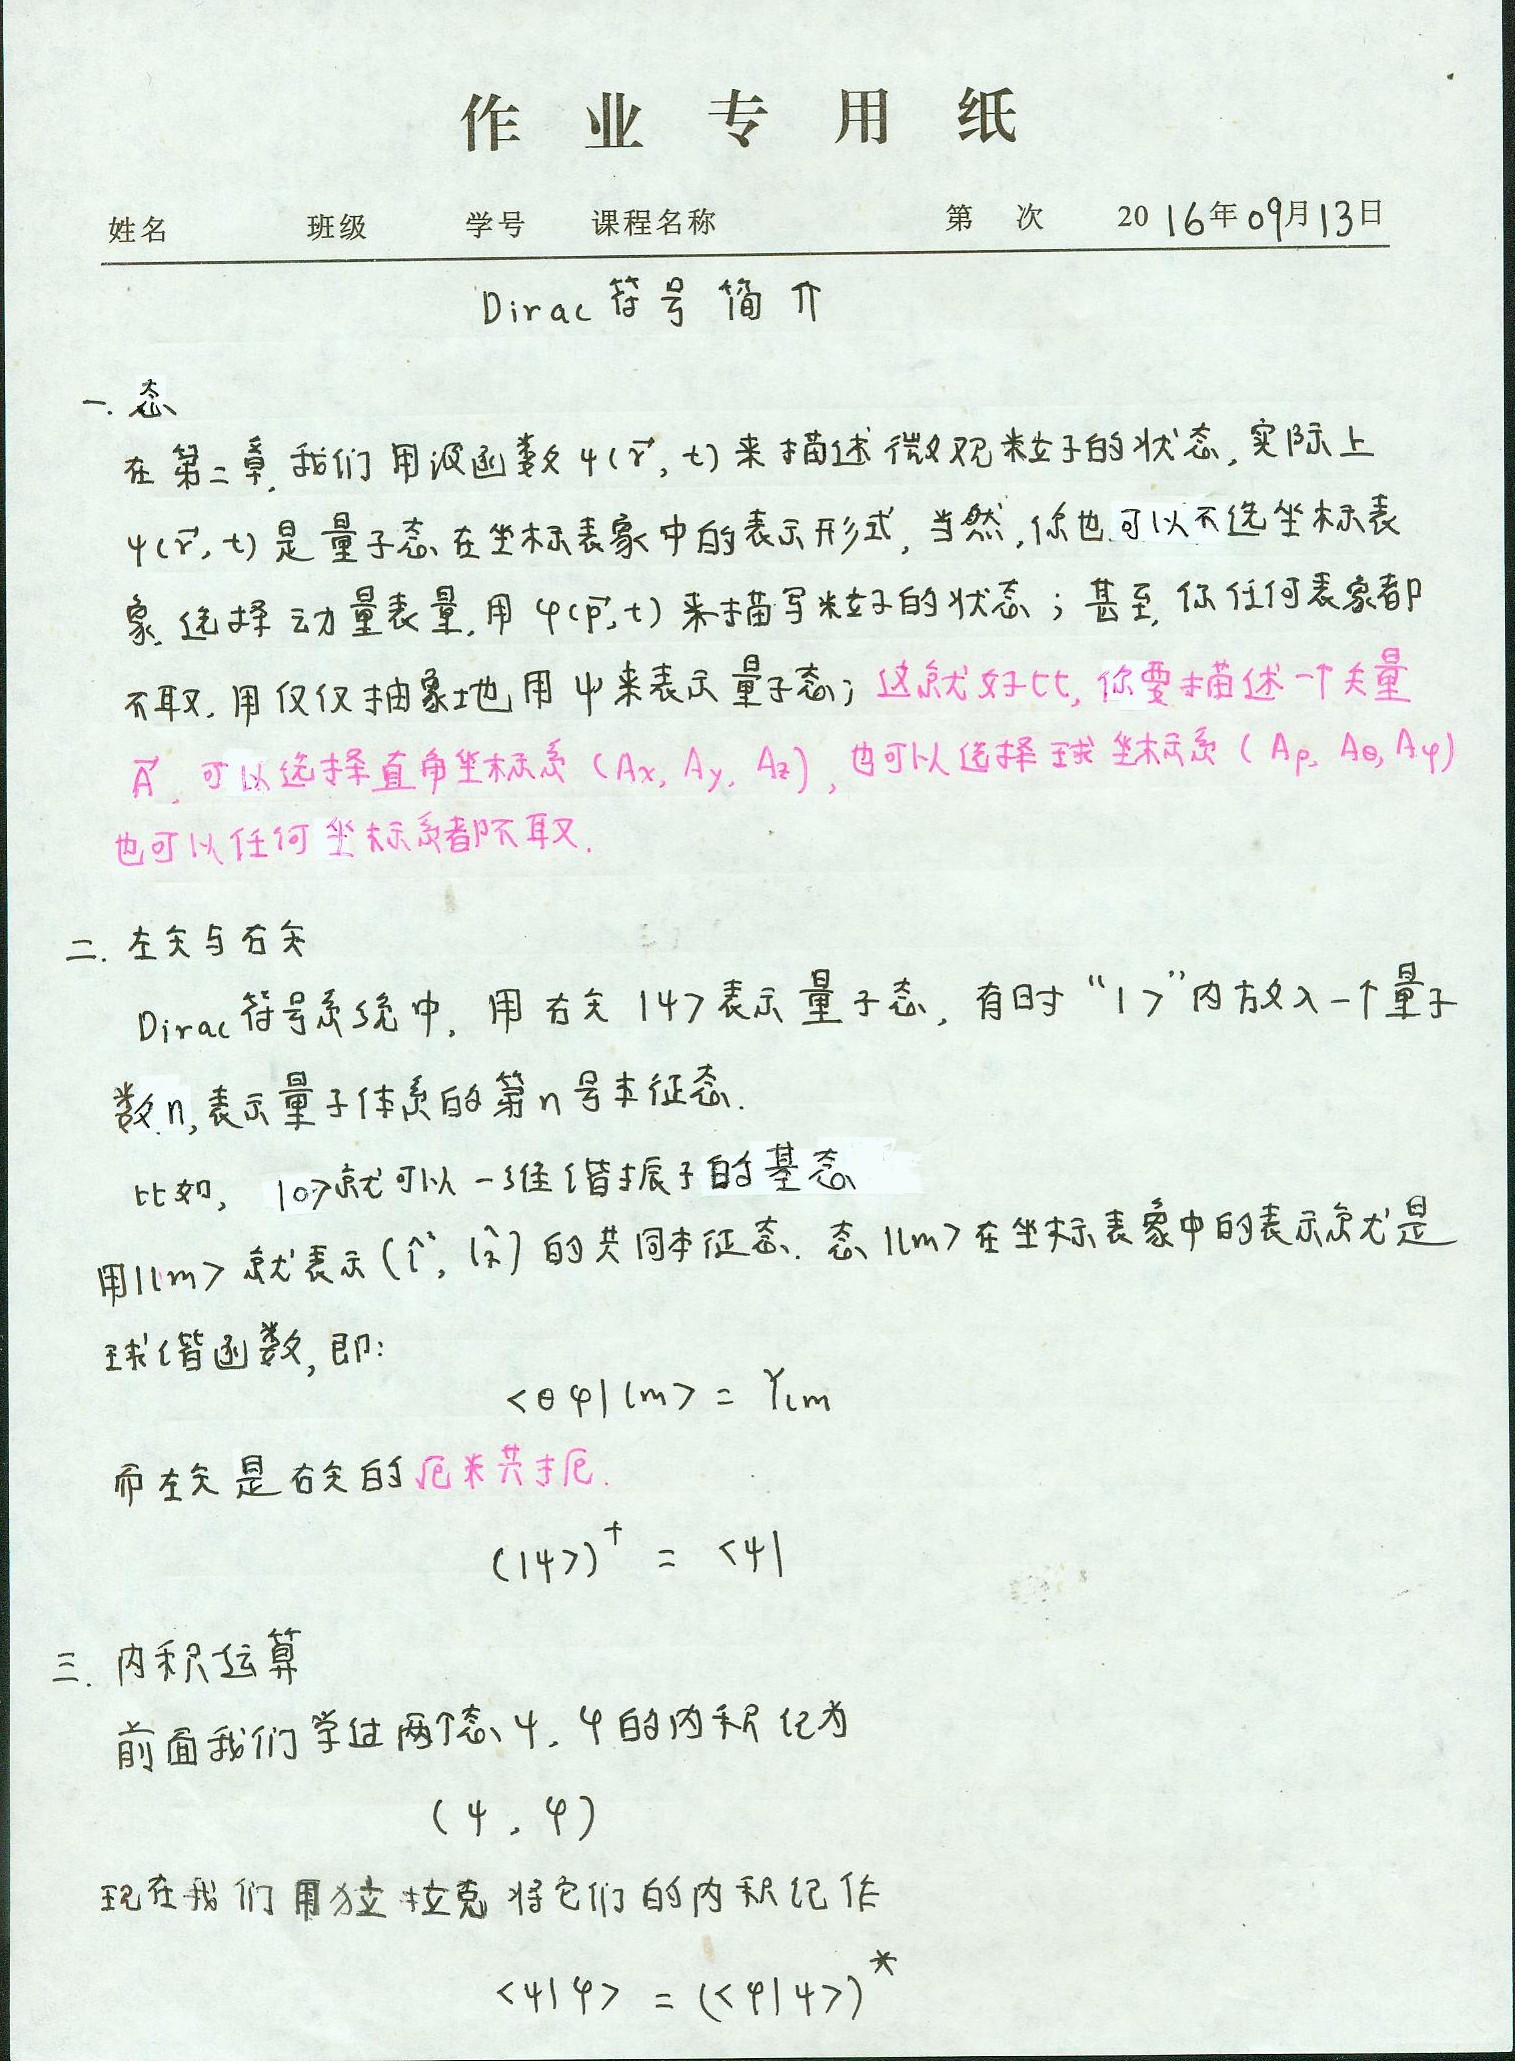 作业专用纸
姓名 班级 学号 课程名称 第 次 2016年09月13日
Dirac符号简介
一. 态
在第二章,我们用波函数ψ(r⃗, t)来描述微观粒子的状态,实际上
ψ(r⃗, t)是量子态在坐标表象中的表示形式,当然,你也可以不选坐标表
象,选择动量表量,用φ(p⃗, t)来描写粒子的状态;甚至,你任何表象都
不取,用仅仅抽象地用ψ来表示量子态;这就好比,你要描述一个矢量
A⃗,可以选择直角坐标系(Ax, Ay, Az),也可以选择球坐标系(Aρ, Aθ, Aφ)
也可以任何坐标系都不取.
二. 左矢与右矢
Dirac符号系统中,用右矢|ψ>表示量子态,有时“| >”内放入一个量子
数n,表示量子体系的第n号本征态.
比如, |0>就可以一维谐振子的基态
用|lm>就表示(l̂², l̂z)的共同本征态. 态|lm>在坐标表象中的表示就是
球谐函数,即:
<θφ|lm> = Ylm
而左矢是右矢的厄米共扼.
(|ψ>)† = <ψ|
三. 内积运算
前面我们学过两个态ψ, φ的内积记为
(ψ, φ)
现在我们用狄拉克将它们的内积记作
<ψ|φ> = (<φ|ψ>)*